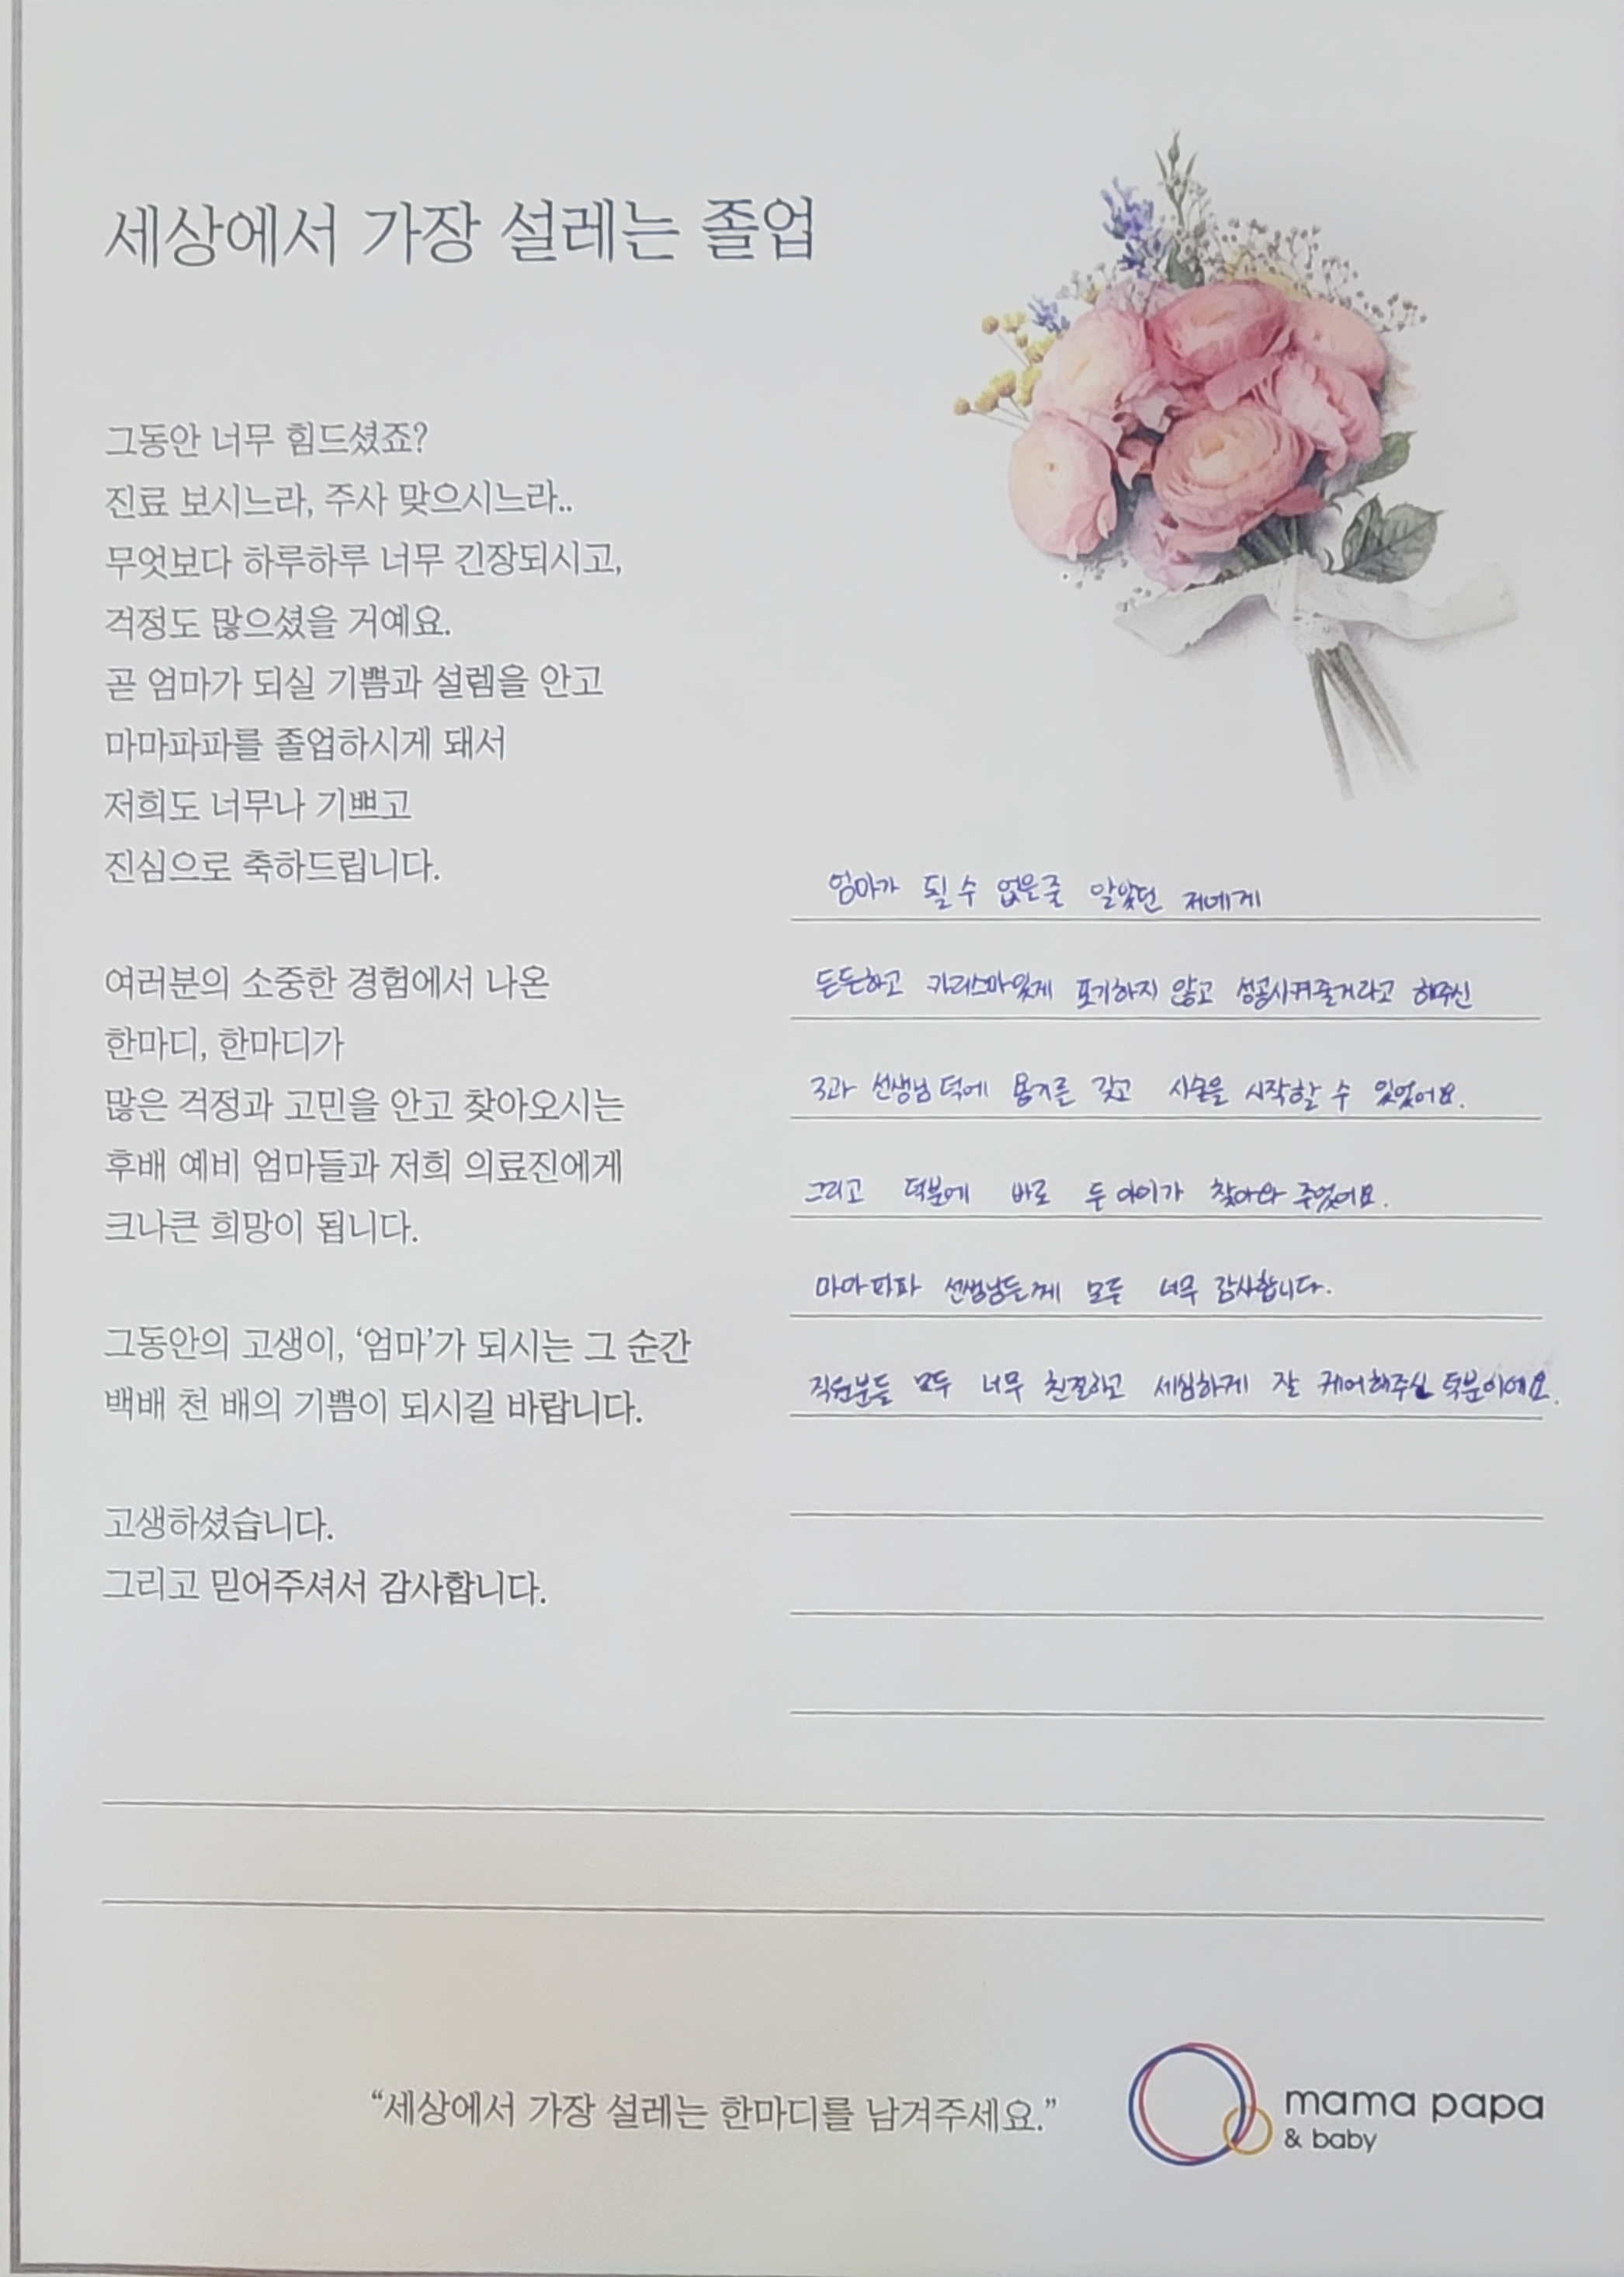 세상에서 가장 설레는 졸업
그동안 너무 힘드셨죠?
진료 보시느라, 주사 맞으시느라..
무엇보다 하루하루 너무 긴장되시고,
걱정도 많으셨을 거예요.
곧 엄마가 되실 기쁨과 설렘을 안고
마마파파를 졸업하시게 돼서
저희도 너무나 기쁘고
진심으로 축하드립니다.
여러분의 소중한 경험에서 나온
한마디, 한마디가
많은 걱정과 고민을 안고 찾아오시는
후배 예비 엄마들과 저희 의료진에게
크나큰 희망이 됩니다.
그동안의 고생이, ‘엄마’가 되시는 그 순간
백배 천 배의 기쁨이 되시길 바랍니다.
고생하셨습니다.
그리고 믿어주셔서 감사합니다.
엄마가 될 수 없은줄 알았던 저에게
든든하고 카리스마있게 포기하지 않고 성공시켜줄거라고 해주신
3과 선생님 덕에 용기를 갖고 시술을 시작할 수 있었어요.
그리고 덕분에 바로 두 아이가 찾아와 주었어요.
마마파파 선생님들께 모두 너무 감사합니다.
직원분들 모두 너무 친절하고 세심하게 잘 케어해주신 덕분이에요.
“세상에서 가장 설레는 한마디를 남겨주세요.”
mama papa
& baby